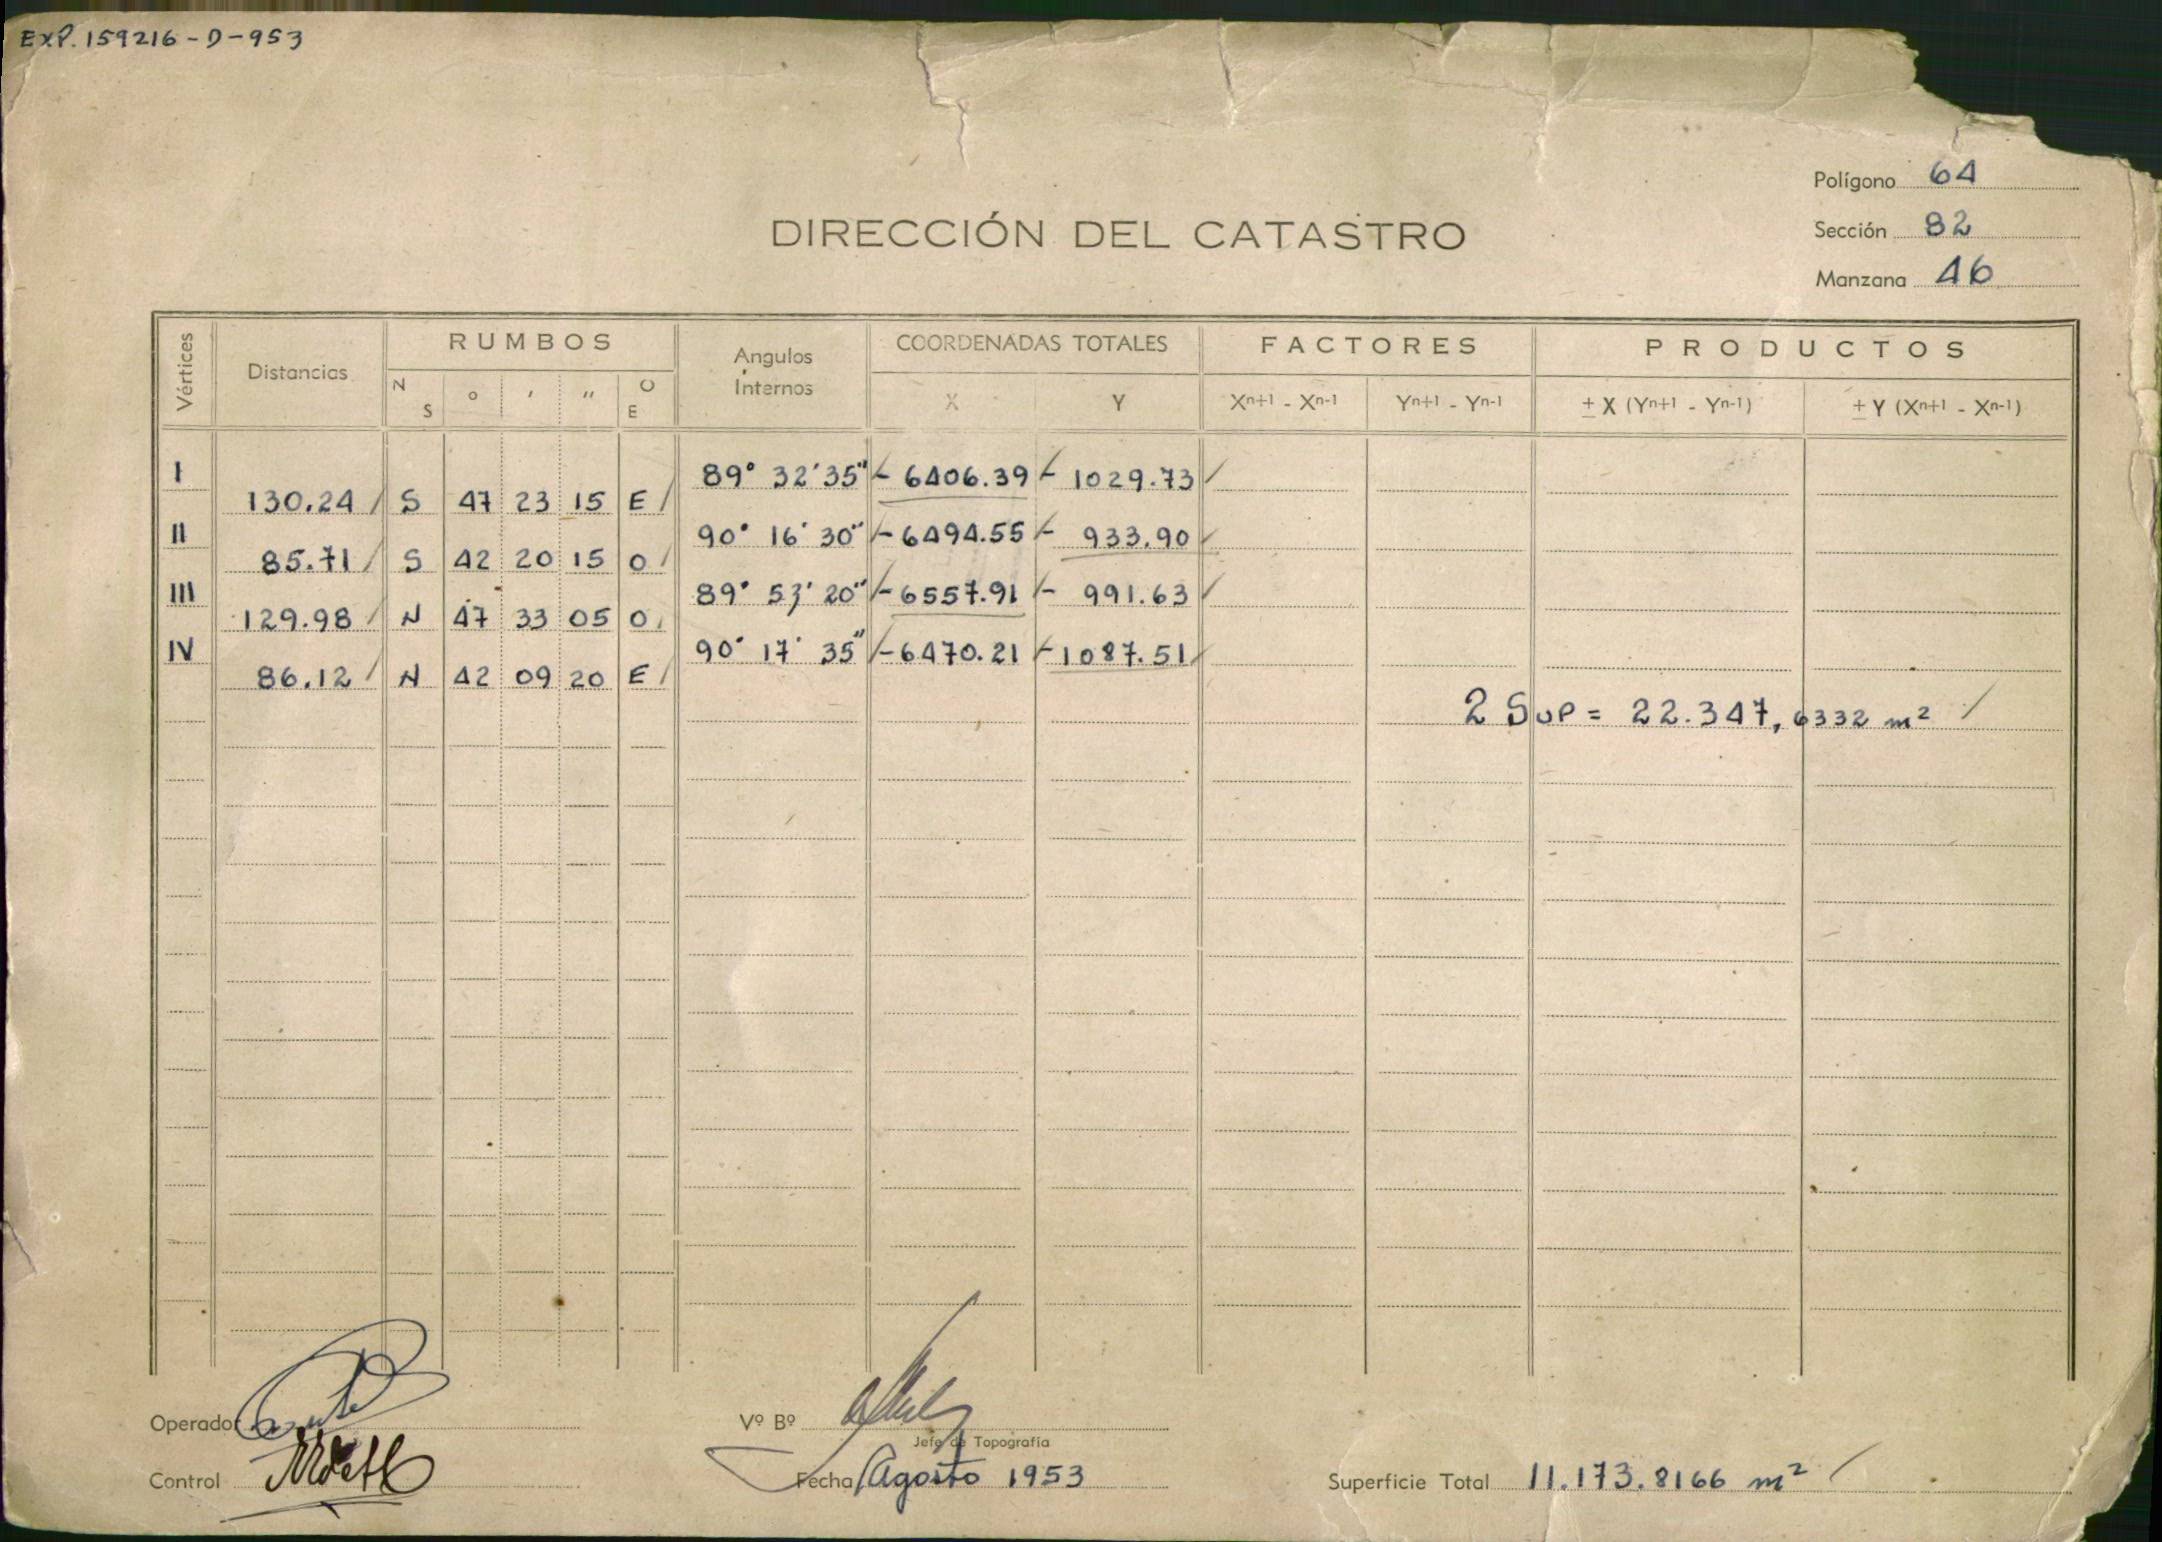 EXP. 159216 - D - 953
Polígono 64
DIRECCIÓN DEL CATASTRO
Sección 82
Manzana 46
Vértices Distancias RUMBOS Angulos Internos COORDENADAS TOTALES FACTORES PRODUCTOS
N S ° ' '' O E X Y Xn+1 - Xn-1 Yn+1 - Yn-1 ± X (Yn+1 - Yn-1) ± Y (Xn+1 - Xn-1)
I 89° 32' 35" - 6406.39 - 1029.73
130.24 S 47 23 15 E
II 90° 16' 30" - 6494.55 - 933.90
85.71 S 42 20 15 O
III 89° 53' 20" - 6557.91 - 991.63
129.98 N 47 33 05 O
IV 90° 17' 35" - 6470.21 - 1087.51
86.12 N 42 09 20 E
2 SUP = 22.347,6332 m²
Operador
Vº Bº
Jefe de Topografía
Control
Fecha Agosto 1953
Superficie Total 11.173.8166 m²